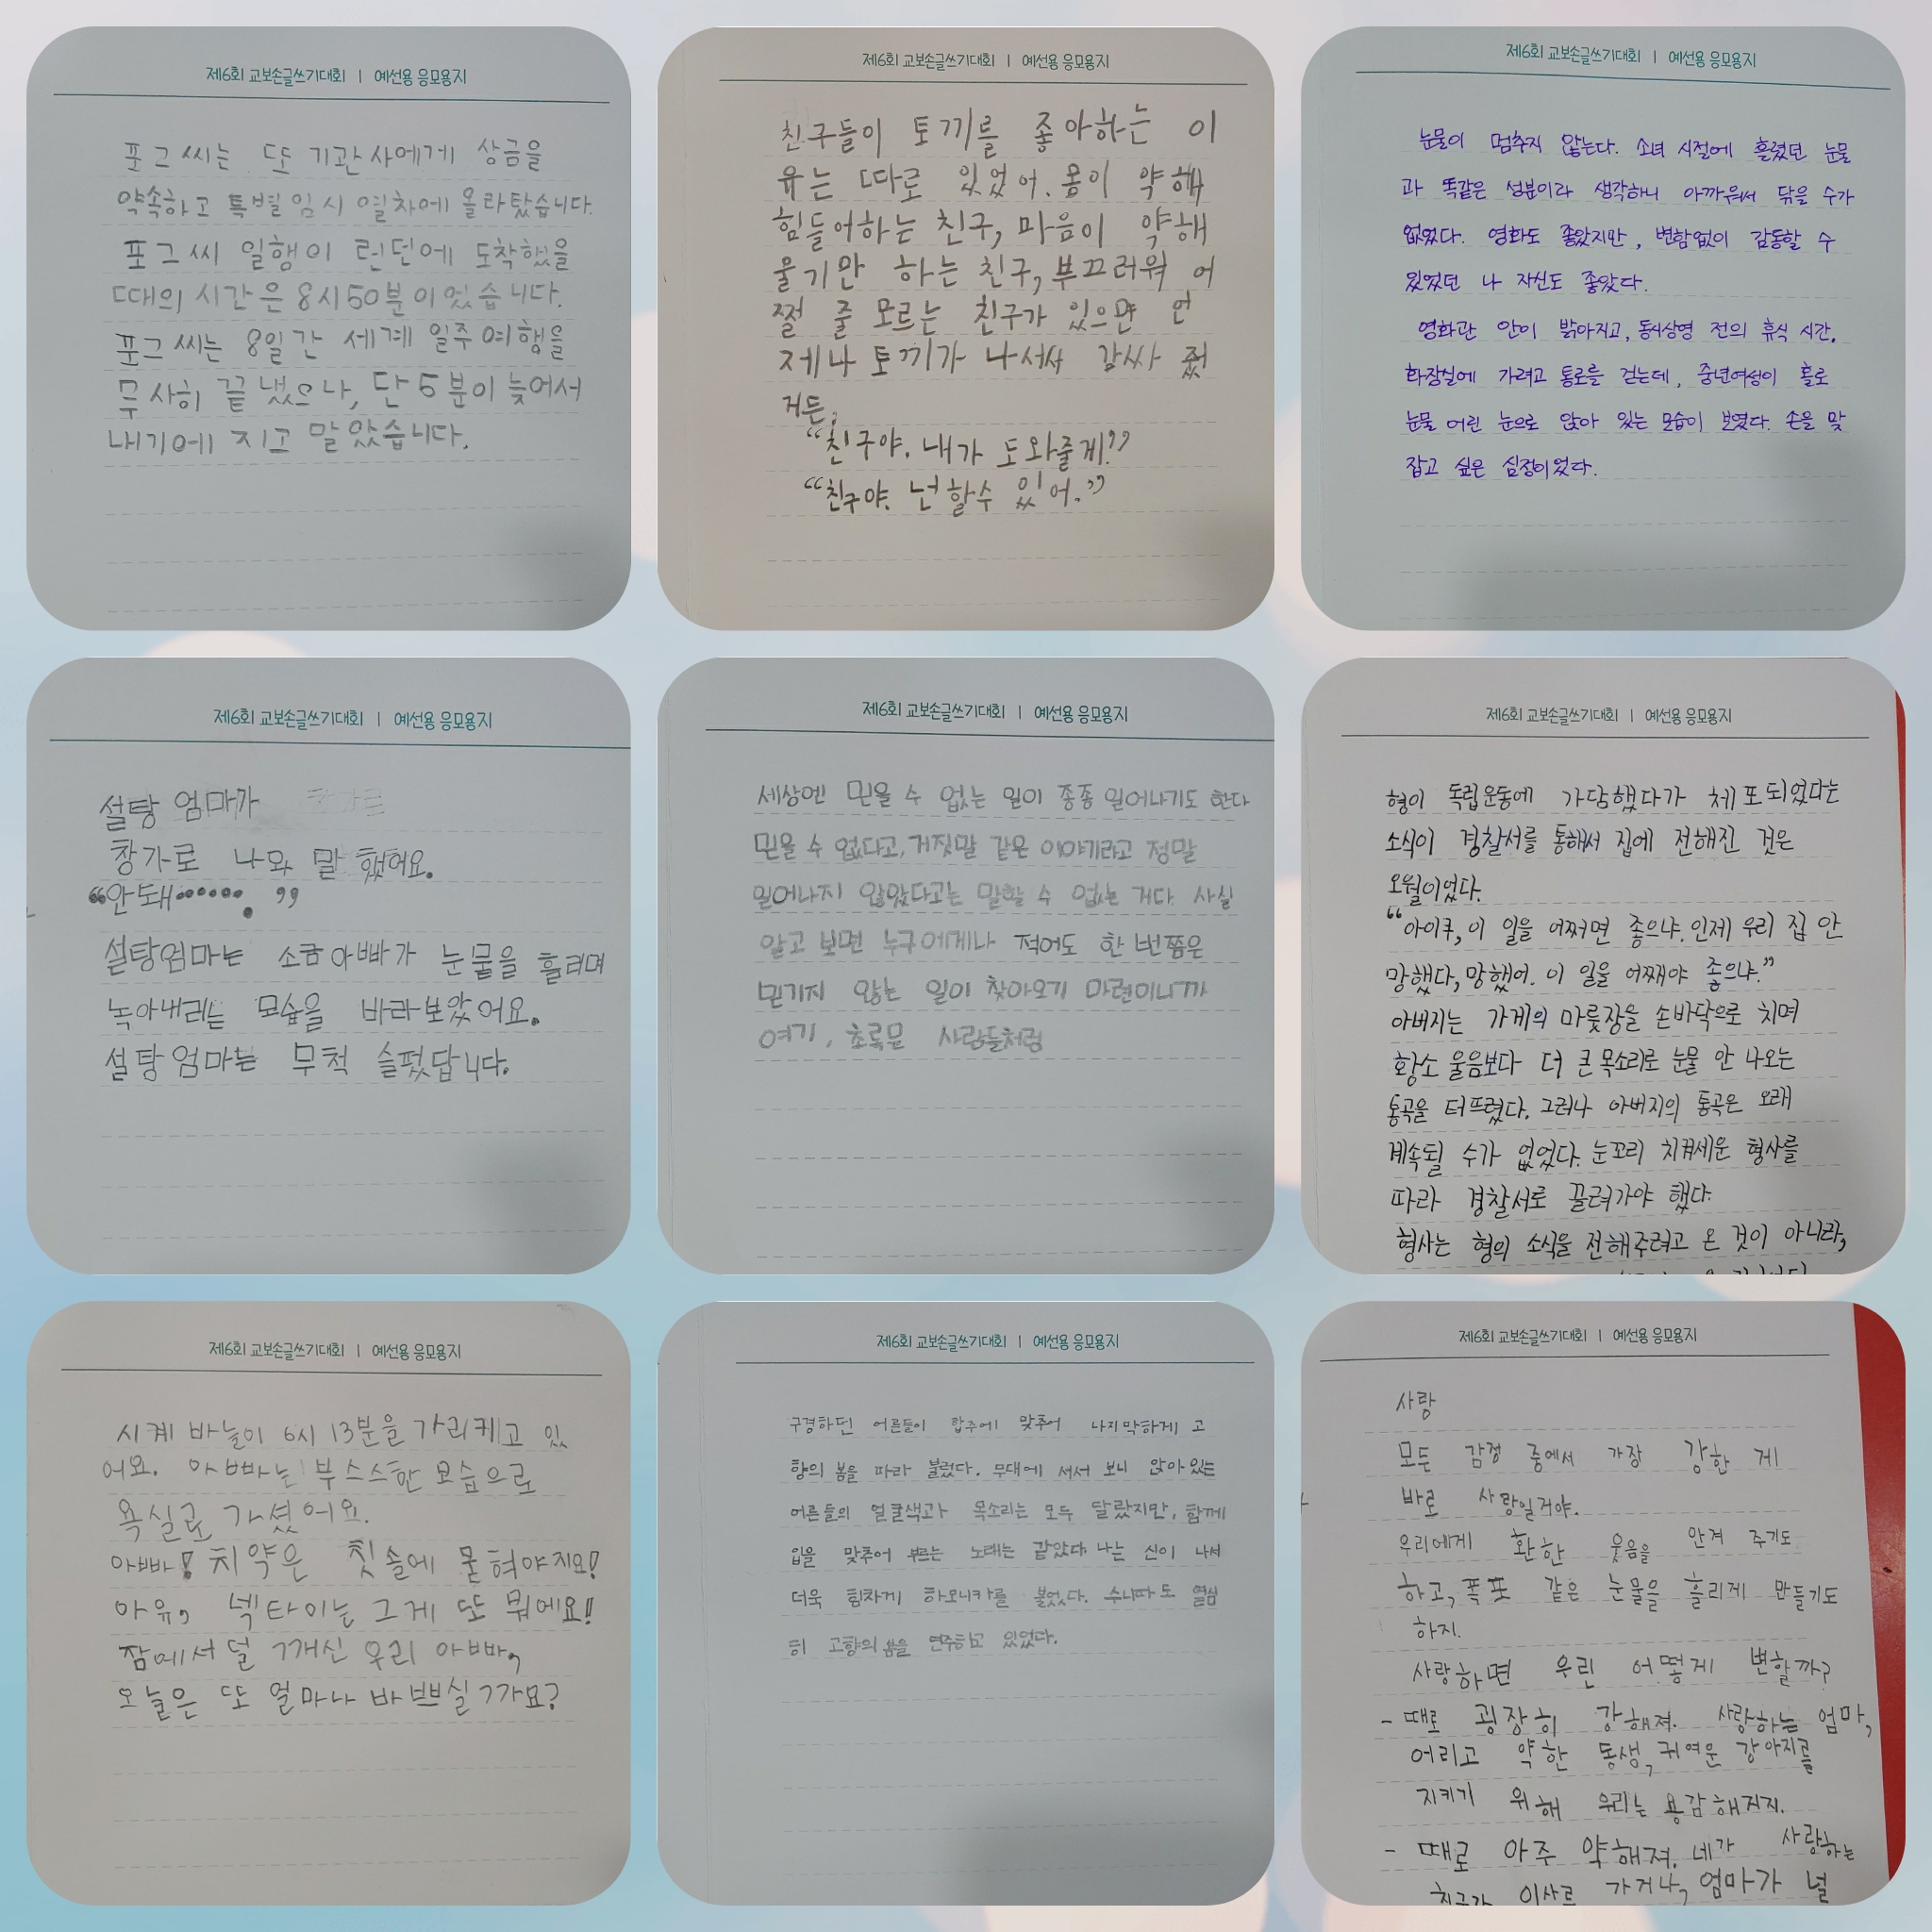 제6회 교보손글쓰기대회 | 예선용 응모용지
포그 씨는 또 기관사에게 상금을
약속하고 특별 임시 열차에 올라탔습니다.
포그 씨 일행이 런던에 도착했을
때의 시간은 8시50분이었습니다.
포그 씨는 8일간 세계 일주 여행을
무사히 끝냈으나, 단 5분이 늦어서
내기에 지고 말았습니다.
제6회 교보손글쓰기대회 | 예선용 응모용지
친구들이 토끼를 좋아하는 이
유는 따로 있었어. 몸이 약해
힘들어하는 친구, 마음이 약해
울기만 하는 친구, 부끄러워 어
쩔 줄 모르는 친구가 있으면 언
제나 토끼가 나서서 감싸 줬
거든.
“친구야. 내가 도와줄게!”
“친구야. 넌 할수 있어.”
제6회 교보손글쓰기대회 | 예선용 응모용지
눈물이 멈추지 않는다. 소녀 시절에 흘렸던 눈물
과 똑같은 성분이라 생각하니 아까워서 닦을 수가
없었다. 영화도 좋았지만, 변함없이 감동할 수
있었던 나 자신도 좋았다.
영화관 안이 밝아지고, 동시상영 전의 휴식 시간.
화장실에 가려고 통로를 걷는데, 중년여성이 홀로
눈물 어린 눈으로 앉아 있는 모습이 보였다. 손을 맞
잡고 싶은 심정이었다.
제6회 교보손글쓰기대회 | 예선용 응모용지
설탕 엄마가
창가로 나와 말 했어요.
“안돼••••••. ”
설탕엄마는 소금아빠가 눈물을 흘리며
녹아내리는 모습을 바라보았어요.
설탕엄마는 무척 슬펐답니다.
제6회 교보손글쓰기대회 | 예선용 응모용지
세상엔 믿을 수 없는 일이 종종 일어나기도 한다
믿을 수 없다고, 거짓말 같은 이야기라고 정말
일어나지 않았다고는 말할 수 없는 거다. 사실
알고 보면 누구에게나 적어도 한 번쯤은
믿기지 않는 일이 찾아오기 마련이니까
여기, 초록문 사람들처럼
제6회 교보손글쓰기대회 | 예선용 응모용지
형이 독립운동에 가담했다가 체포되었다는
소식이 경찰서를 통해서 집에 전해진 것은
오월이었다.
“아이쿠, 이 일을 어쩌면 좋으냐. 인제 우리 집 안
망했다, 망했어. 이 일을 어째야 좋으냐.”
아버지는 가게의 마룻장을 손바닥으로 치며
황소 울음보다 더 큰 목소리로 눈물 안 나오는
통곡을 터뜨렸다. 그러나 아버지의 통곡은 오래
계속될 수가 없었다. 눈꼬리 치켜세운 형사를
따라 경찰서로 끌려가야 했다.
형사는 형의 소식을 전해주려고 온 것이 아니라,
제6회 교보손글쓰기대회 | 예선용 응모용지
시계 바늘이 6시 13분을 가리케고 있
어요. 아빠는 부스스한 모습으로
욕실로 가셨어요.
아빠! 치약은 칫솔에 묻혀야지요!
아유, 넥타이는 그게 또 뭐에요!
잠에서 덜 깨신 우리 아빠,
오늘은 또 얼마나 바쁘실까요?
제6회 교보손글쓰기대회 | 예선용 응모용지
구경하던 어른들이 합주에 맞추어 나지막하게 고
향의 봄을 따라 불렀다. 무대에 서서 보니 앉아있는
어른들의 얼굴색과 목소리는 모두 달랐지만, 함께
입을 맞추어 부르는 노래는 같았다. 나는 신이 나서
더욱 힘차게 하모니카를 불었다. 수니따도 열심
히 고향의 봄을 연주하고 있었다.
제6회 교보손글쓰기대회 | 예선용 응모용지
사랑
모든 감정 중에서 가장 강한 게
바로 사랑일거야.
우리에게 환한 웃음을 안겨 주기도
하고, 폭포 같은 눈물을 흘리게 만들기도
하지.
사랑하면 우린 어떻게 변할까?
- 때로 굉장히 강해져. 사랑하는 엄마,
어리고 약한 동생, 귀여운 강아지를
지키기 위해 우리는 용감해지지.
- 때로 아주 약해져. 네가 사랑하는
친구가 이사를 가거나, 엄마가 널